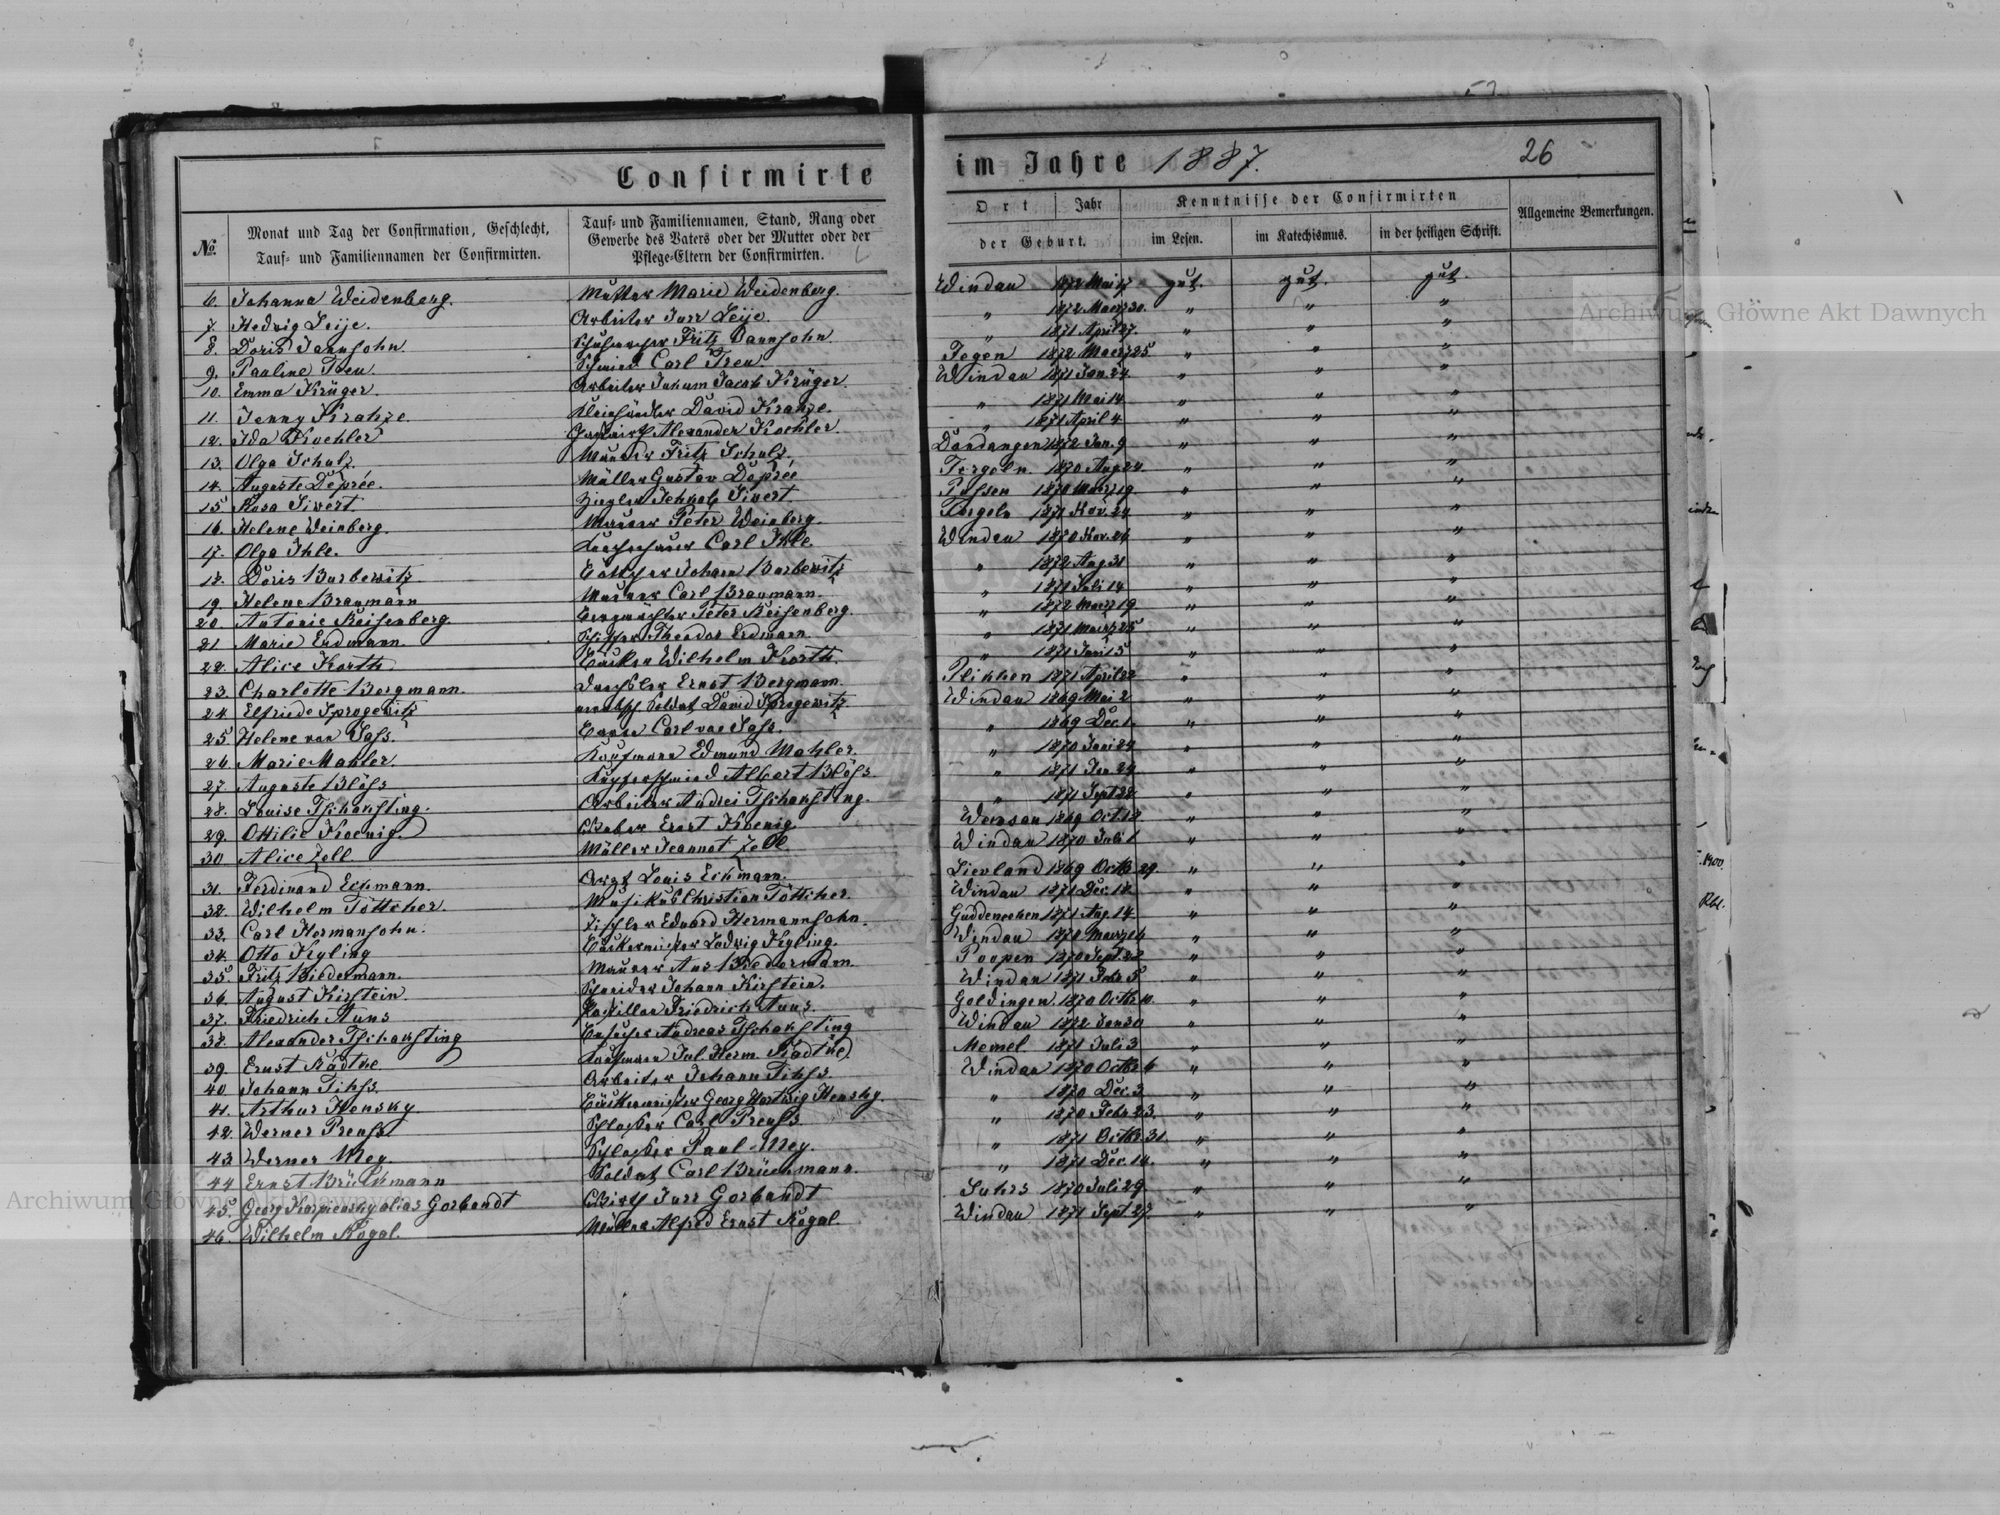 Confirmirte im Jahre 1887. 26
No. Monat und Tag der Confirmation, Geschlecht, Tauf- und Familiennamen der Confirmirten. Tauf- und Familiennamen, Stand, Rang oder Gewerbe des Vaters oder der Mutter oder der Pflege-Eltern der Confirmirten. Ort Jahr der Geburt. Kenntnisse der Confirmirten im Lesen. im Katechismus. in der heiligen Schrift. Allgemeine Bemerkungen.
6. Johanna Weidenberg. Mutter Marie Weidenberg. Windau 1872 Mai 17 gut. gut. gut.
7. Hedwig Leije. Arbeiter Jurr Leije. " 1872 Maerz 30. " " "
8. Doris Dannsohn. Fritz Dannsohn " 1871 April 27. " " "
9. Pauline Treu. Schmied Carl Treu. 1872 Maerz 25 " " "
10. Emma Krüger. Arbeiter Jacob Krüger. Windau 1871 Jan. 24 " " "
11. Jenny Kranze. Kleinhändler David Kranze. " 1871 Mai 14 " " "
12. Ida Koehler Alexander Koehler. " 1871 April 4 " " "
13. Olga Schulz. Maurer Fritz Schulz. Dondangen 1872 Jan. 9 " " "
14. Auguste Déprée. Müller Gustav Déprée 1870 Aug 24 " " "
15 Rosa Sivert Ziegler Sivert 1870 Maerz 19 " " "
16. Helene Weinberg. Maurer Peter Weinberg. 1871 Nov. 24 " " "
17. Olga Ihle. Carl Ihle. Windau 1870 Nov. 26 " " "
18. Doris Burbewitz Johann Burbewitz " 1872 Aug 31 " " "
19. Helene Braumann Maurer Carl Braumann. " 1871 Juli 14 " " "
20. Antonie Reisenberg. Peter Reisenberg. " 1872 Maerz 19 " " "
21 Marie Erdmann. Theodor Erdmann. " 1871 Maerz 25 " " "
22. Alice Korth Bäcker Wilhelm Korth. " 1871 Juni 5 " " "
23. Charlotte Bergmann. Drechsler Ernst Bergmann. 1871 April 22 " " "
24 Elfriede Sprogewitz Soldat David Sprogewitz Windau 1869 Mai 2 " " "
25. Helene von Sass. Baron Carl von Sass. " 1869 Dec. 1. " " "
26. Marie Mahler. Kaufmann Edmund Mahler. " 1870 Juni 24 " " "
27. Auguste Blöss Kupferschmied Albert Blöss. " 1871 Jan. 24 " " "
28. Louise Tschaksting. Arbeiter Andrei Tschaksting. " 1871 Sept 22 " " "
29. Ottilie Koenig. Weber Ernst Koenig. 1869 Oct. 18 " " "
30 Alice Zell Müller Jeannot Zell Windau 1870 Juli 1 " " "
31. Ferdinand Eckmann. Arzt Louis Eckmann. Lievland 1869 Octb 29. " " "
32. Wilhelm Töttcher. Musikus Christian Töttcher. Windau 1871 Dec. 18. " " "
33. Carl Hermansohn. Tischler Eduard Hermannsohn. 1871 Aug. 14 " " "
34. Otto Kyling Bäckermeister Ludwig Kyling. Windau 1870 Maerz 16 " " "
35. Fritz Biedermann. Maurer Ans Biedermann. Poopen 1870 Sept. 28 " " "
36. August Kirstein. Schneider Johann Kirstein. Windau 1871 Febr 5 " " "
37. Friedrich Auns Postillon Friedrich Auns. Goldingen 1870 Octb 10. " " "
38. Alexander Tschaksting Andreas Tschaksting Windau 1872 Jan 30 " " "
39. Ernst Rädtke. Kaufmann Jul. Herm. Rädtke. Memel. 1871 Juli 3 " " "
40. Johann Tihss. Arbeiter Johann Tihss. Windau 1870 Octb 6 " " "
41. Arthur Hensky Bäckermeister Georg Hartwig Hensky. " 1870 Dec. 3 " " "
42. Werner Preuss Schlosser Carl Preuss. " 1870 Febr 23. " " "
43 Werner Mey. Schlosser Paul Mey. " 1871 Octb 31. " " "
44 Ernst Brückmann Soldat Carl Brückmann. " 1871 Dec. 14. " " "
45. Georg alias Gorbandt Wirth Jurr Gorbandt 1870 Juli 29 " " "
46. Wilhelm Rogal. Müller Alfred Ernst Rogal. Windau 1871 Sept 27. " " "
Archiwum Główne Akt Dawnych
Archiwum Główne Akt Dawnych